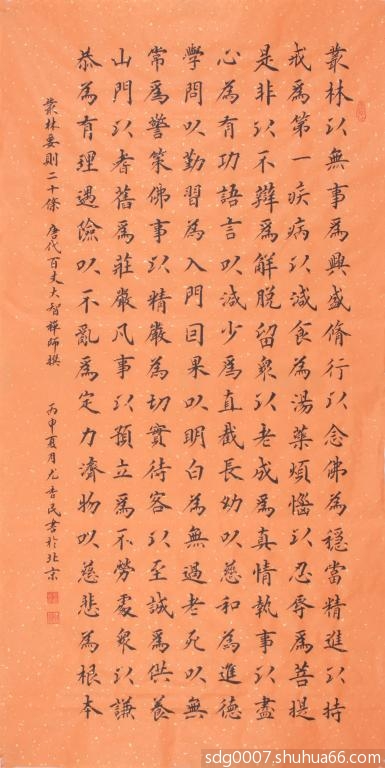 叢林以無事為興盛脩行以念佛為穩當精進以持
戒為第一疾病以減食為湯藥煩惱以忍辱為菩提
是非以不辯為解脫留眾以老成為真情執事以盡
心為有功語言以減少為直截長幼以慈和為進德
學問以勤習為入門因果以明白為無過老死以無
常為警策佛事以精嚴為切實待客以至誠為供養
山門以耆舊為莊嚴凡事以預立為不勞處眾以謙
恭為有理遇險以不亂為定力濟物以慈悲為根本
叢林要則二十條 唐代百丈大智禪師撰 丙申夏月尤香民書於北京
sdg0007.shuhua66.com